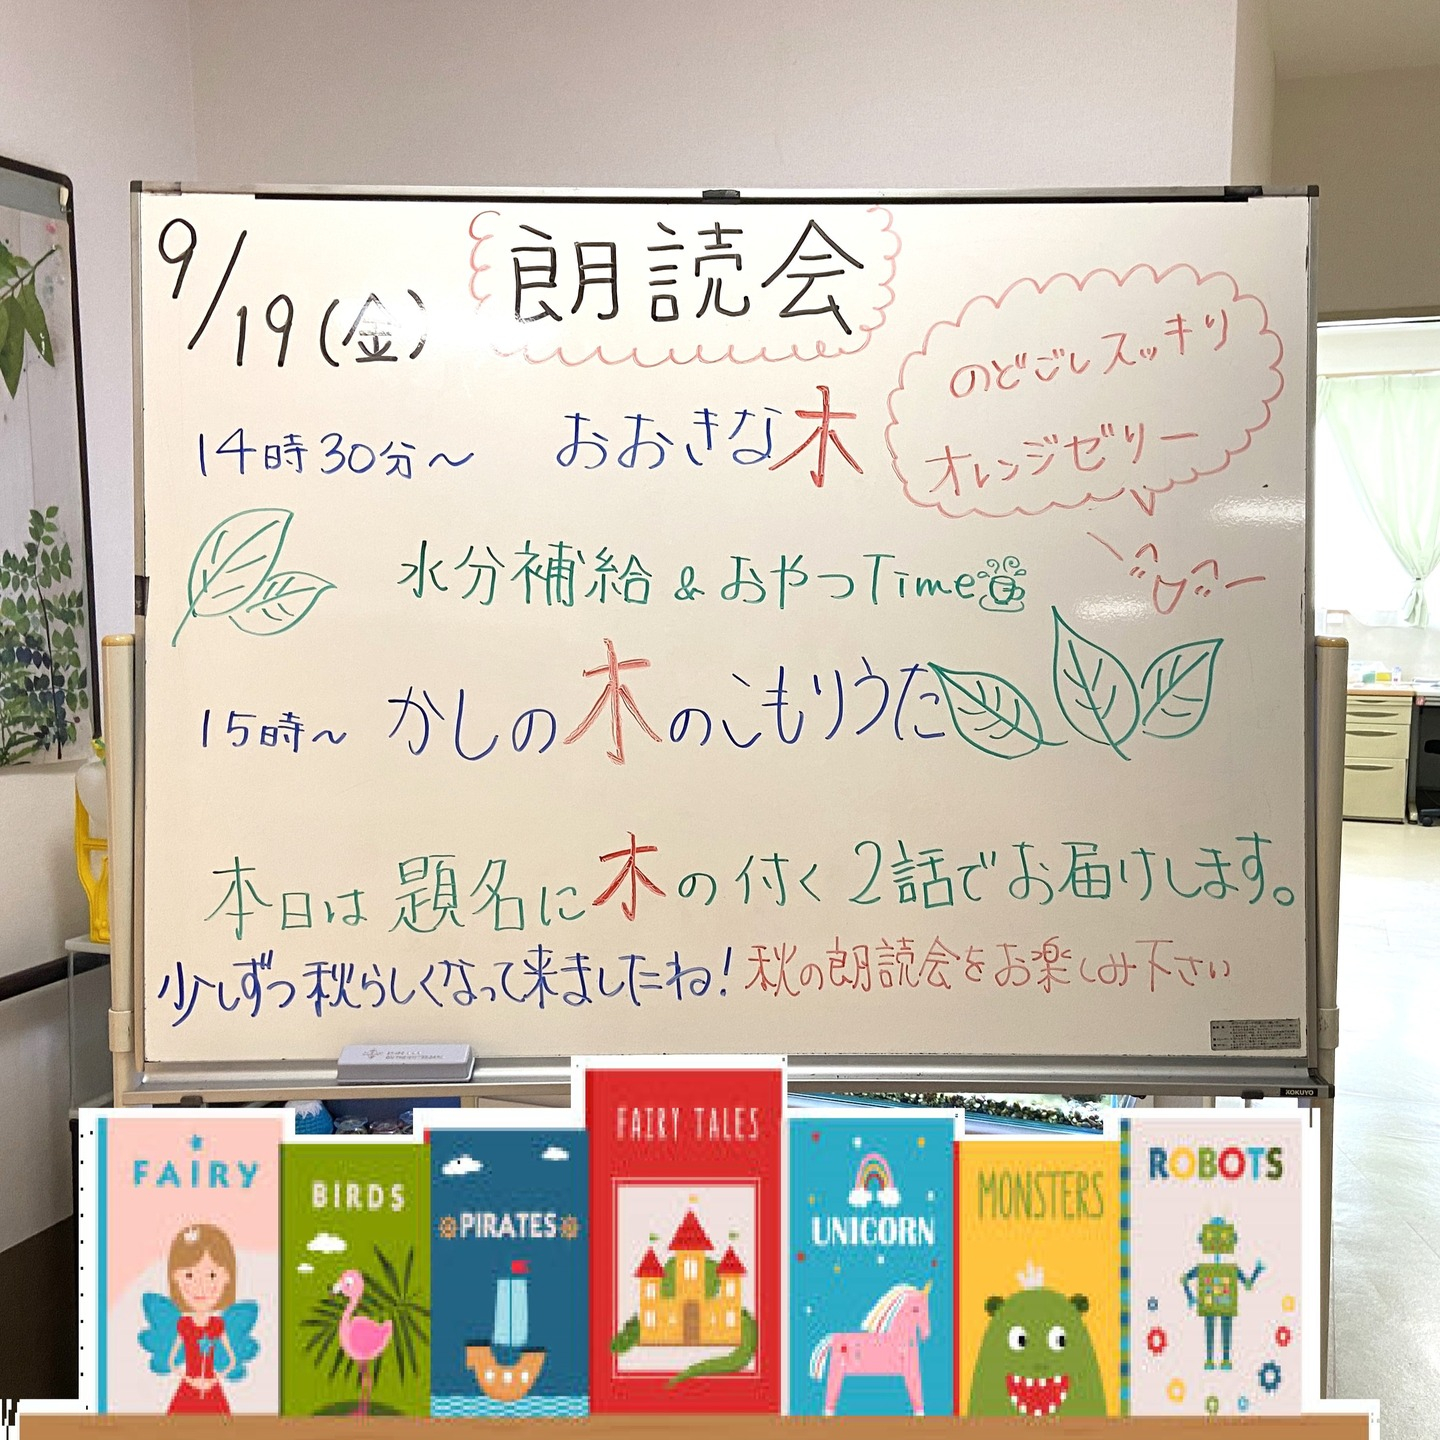 9/19(金)
朗読会
のどごしスッキリ
オレンジゼリー
14時30分～ おおきな木
水分補給 & おやつTime
15時～ かしの木のこもりうた
本日は題名に木の付く2話でお届けします。
少しずつ秋らしくなって来ましたね！秋の朗読会をお楽しみ下さい
KOKUYO
FAIRY
BIRDS
PIRATES
FAIRY TALES
UNICORN
MONSTERS
ROBOTS